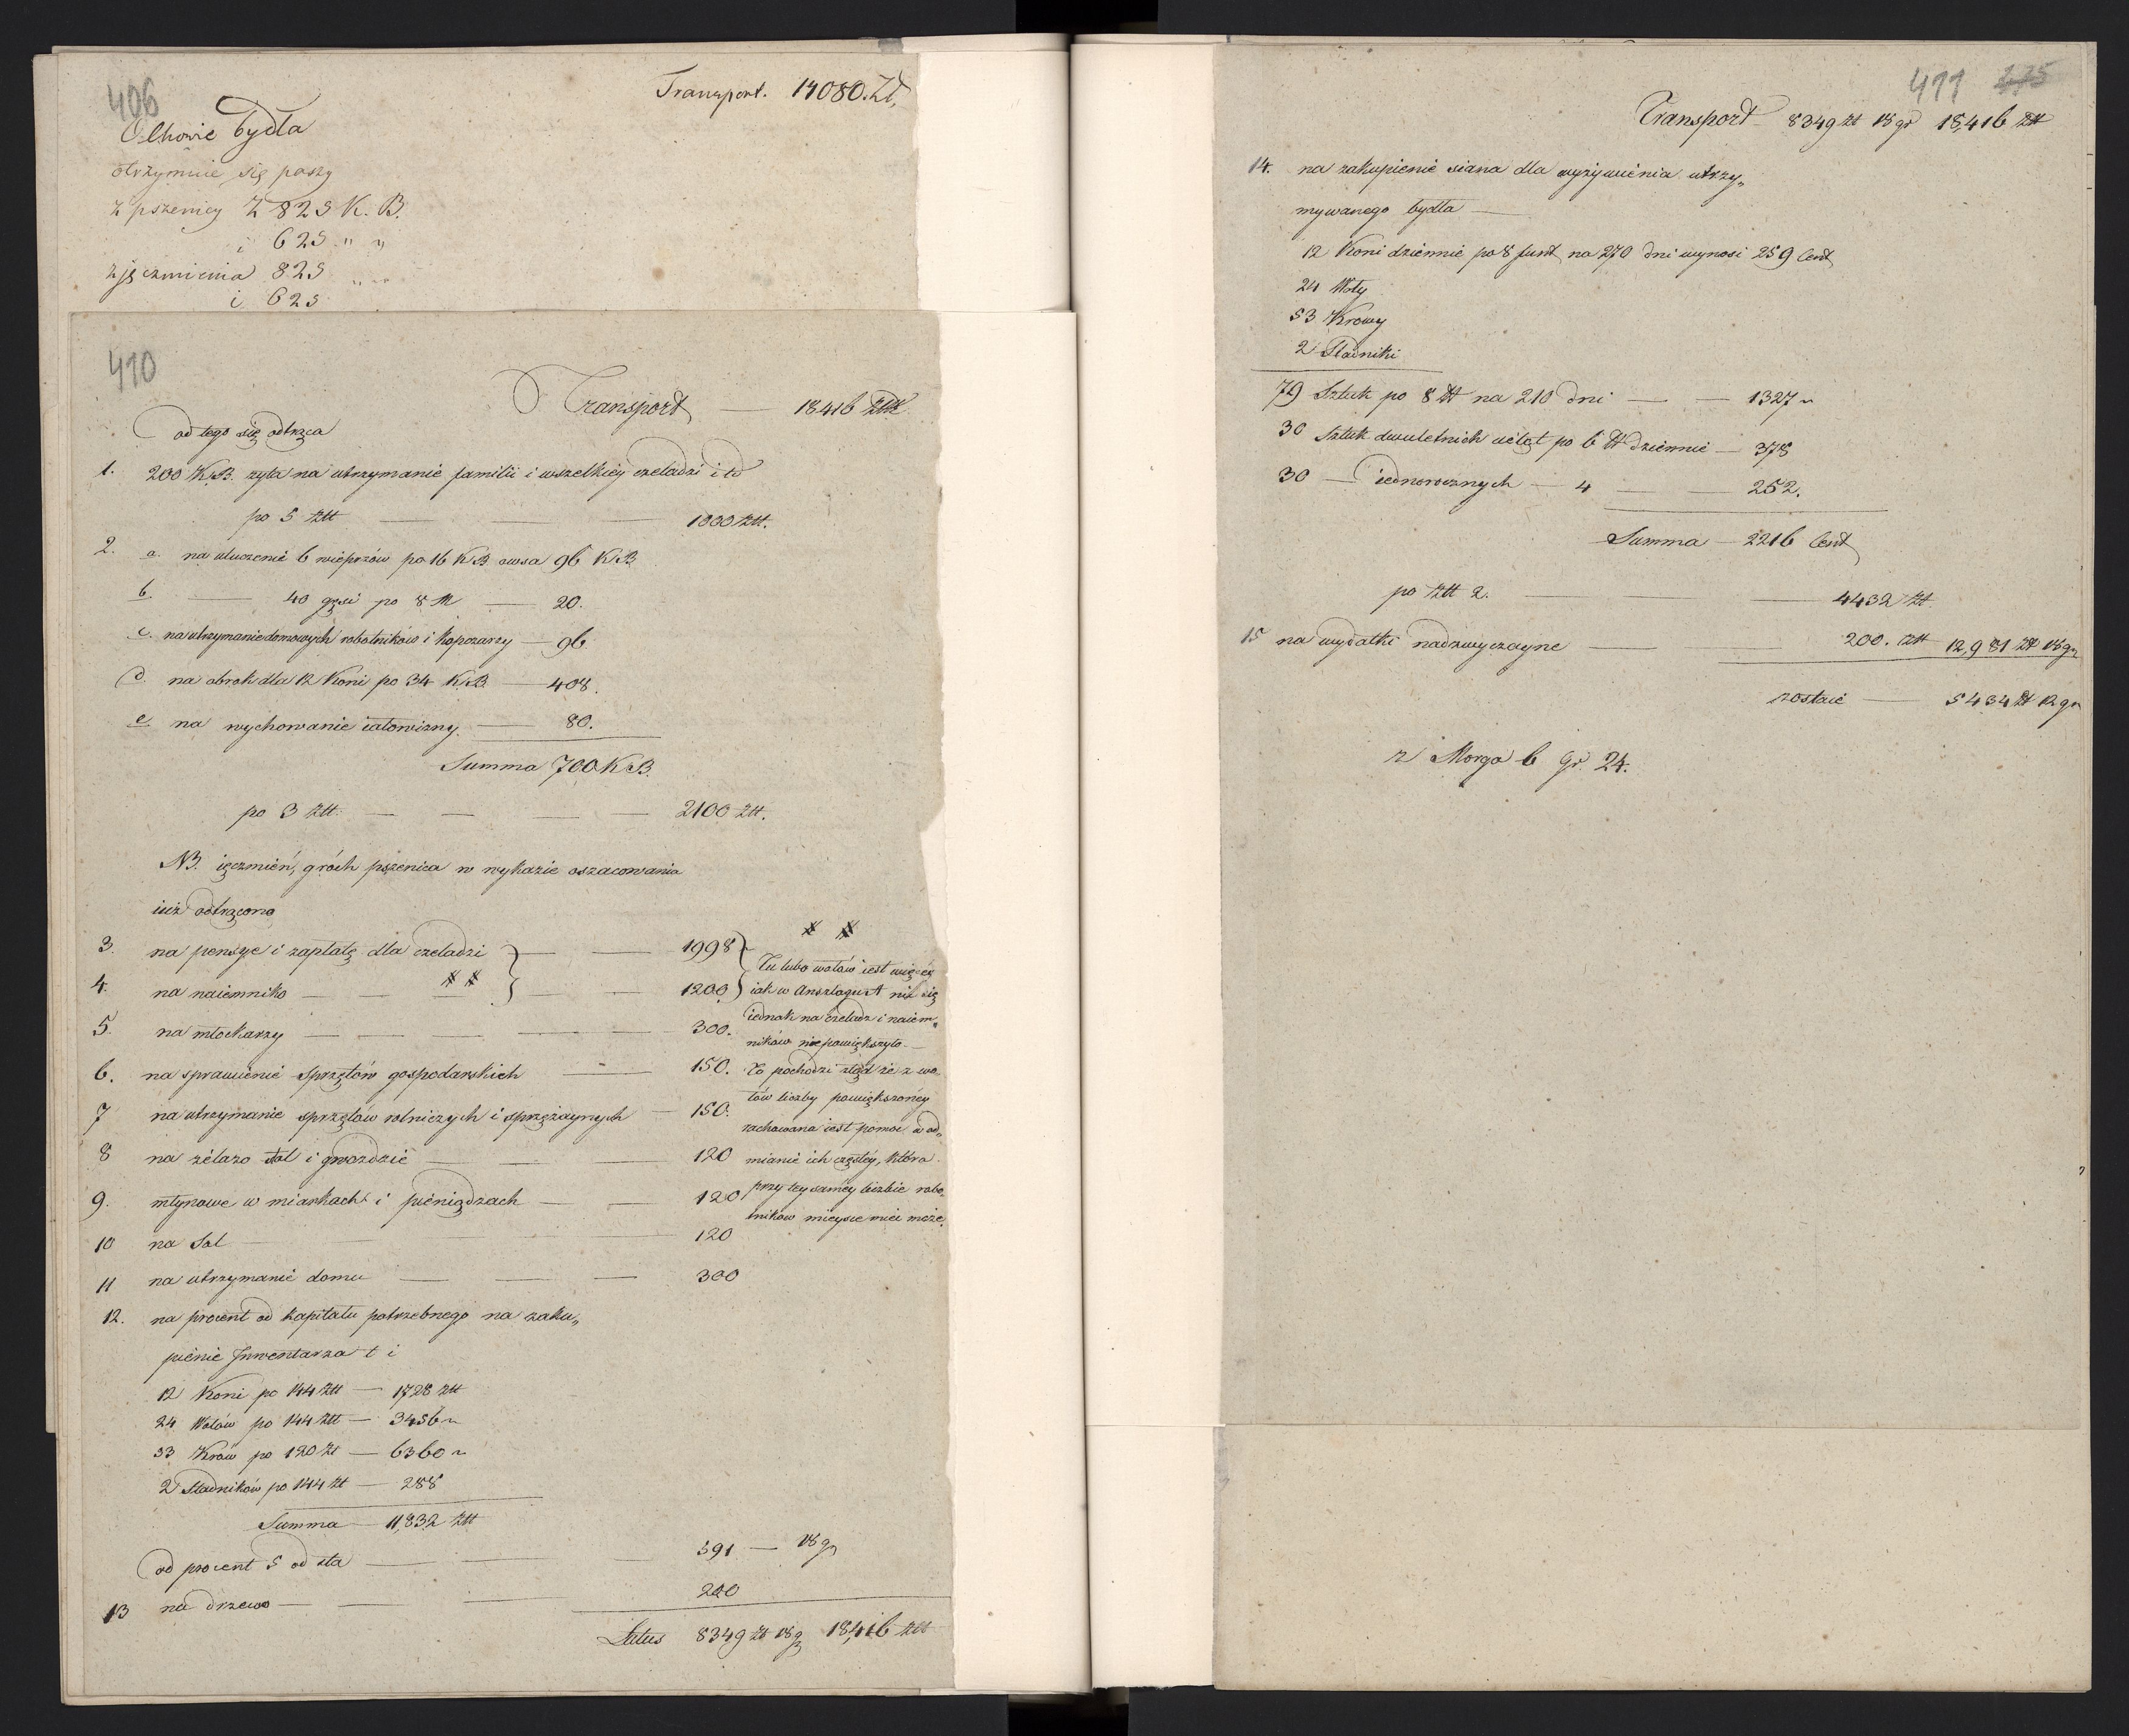 406
Transport. 14080. Zł,
O Chowie bydła
otrzymuie się paszy
z pszenicy Z 825 K. B.
i 625 " "
z jęczmienia 825 " "
i 625
410
Transport — 18416 ztt
od tego się odtrąca
1. 200 K.B. żyta na utrzymanie familii i wszelkiey czeladzi i t d
po 5 ztt — 1000 ztt.
2. a. na utuczenie 6 wieprzów po 16 K B owsa 96 K B
b. — 40 gęsi po 8 M — 20.
c. na utrzymanie domowych robotników i kopczarzy — 96
d. na obrok dla 12 Koni po 34 K.B — 408.
e. na wychowanie iałowizny. — 80.
Summa 700 K B.
po 3 ztt. — 2100 ztt.
NB. ięczmień, gróch pszenica w wykazie oszacowania
iuż odtrącono
3. na pensye i zapłatę dla czeladzi — 1998
4. na naiemnika — 1200
5. na młockarzy — 300.
6. na sprawienie sprzętów gospodarskich — 150.
7 na utrzymanie sprzętów rolniczych i sprzężaynych — 150.
8 na żelazo stal i gwozdzie — 120
9. młynowe w miarkach i pieniądzach — 120
10 na Sol — 120
11 na utrzymanie domu — 300
Tu lubo wołów iest więcey
iak w Anszlagu A niż się
iednak na czeladz i naiem„
ników niepowiększyło. —
To pochodzi ztąd że z wo„
łów liczby powiększoney
zachowana iest pomoc w od„
mianie ich częstey, która
przy tey samey liczbie robo„
tników mieysce mieć może.
12. na procent od kapitału potrzebnego na zaku„
pienie Inwentarza t i
12 Koni po 144 ztt — 1728 ztt
24 Wołów po 144 ztt — 3456 "
53 Krów po 120 zt — 6360 "
2 Stadników po 144 zt — 288
Summa — 11,832 ztt
od procent 5 od sta — 591 — 18 gr
13 na drzewo — 200
Latus 8349 zt 18 g 18,416 ztt
411 475
Transport 8349 zt 18 gr 18,416 ztt
14. na zakupienie siana dla wyżywienia utrzy„
mywanego bydła —
12 Koni dziennie po 8 funt na 270 dni wynosi 259 Cent
24 Woły
53 Krowy
2 Stadniki
79 Sztuk po 8 ℔ na 210 dni — 1327 "
30 Sztuk dwuletnich cieląt po 6 ℔ dziennie — 378
30 — iednorocznych — 4 — 252.
Summa — 2216 Cent
po ztt 2. — 4432 zt
15 na wydatki nadzwyczayne — 200. ztt 12,981 zt 18 gr
zostaie — 5434 zt 12 gr
z Morga 6 gr. 24.